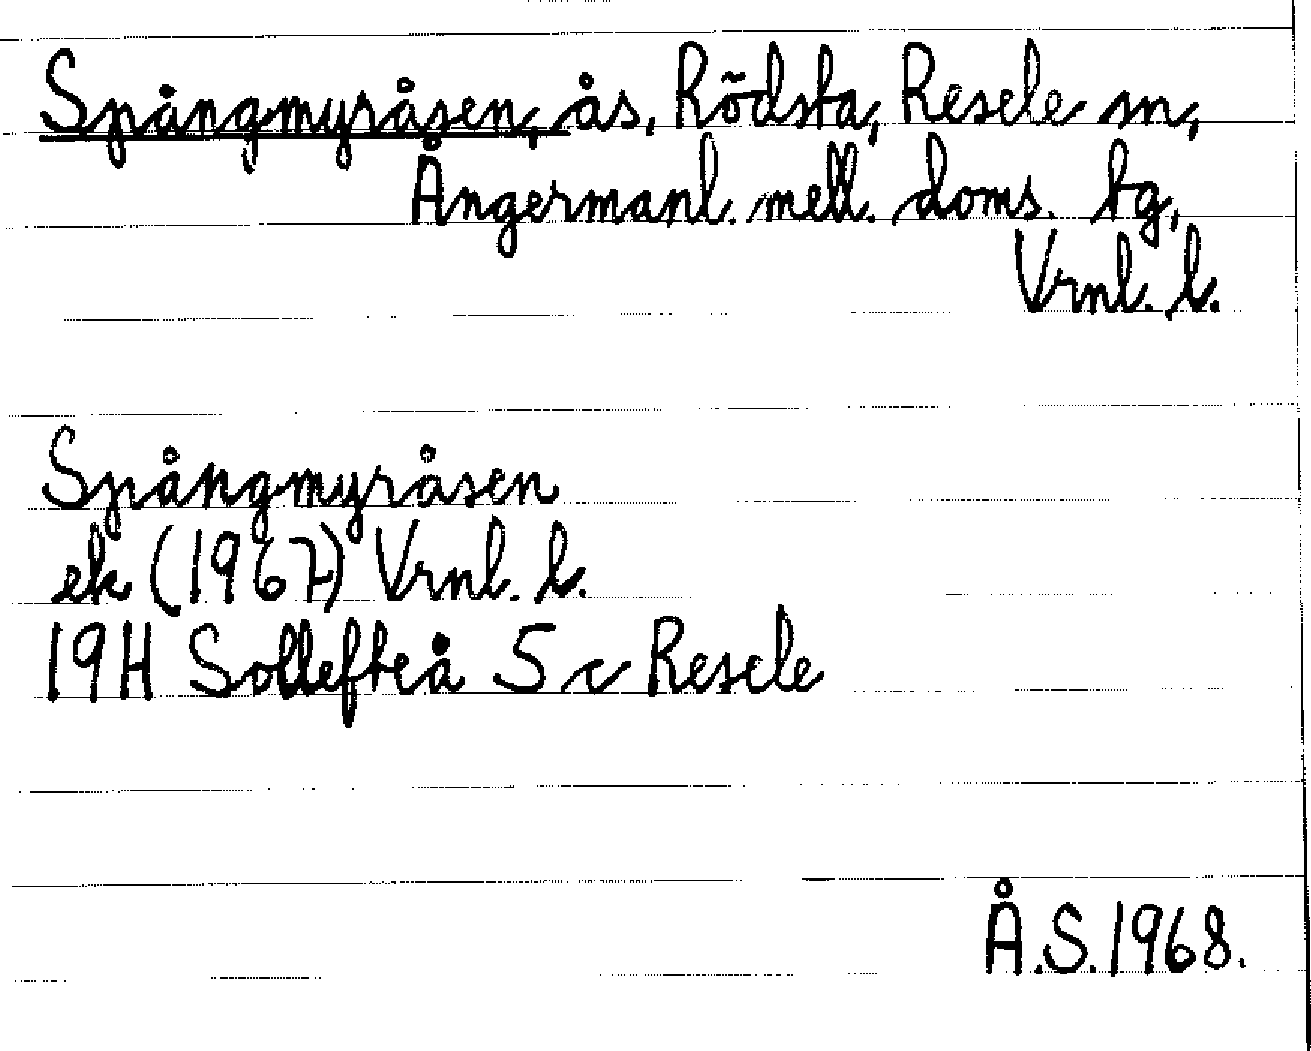 Spångmyråsen, ås, Rödsta, Resele sn,
Ångermanl. mell. doms. tg,
Vrnl. l.
Spångmyråsen
ek (1967) Vrnl. l.
19H Sollefteå 5 c Resele
Å.S. 1968.